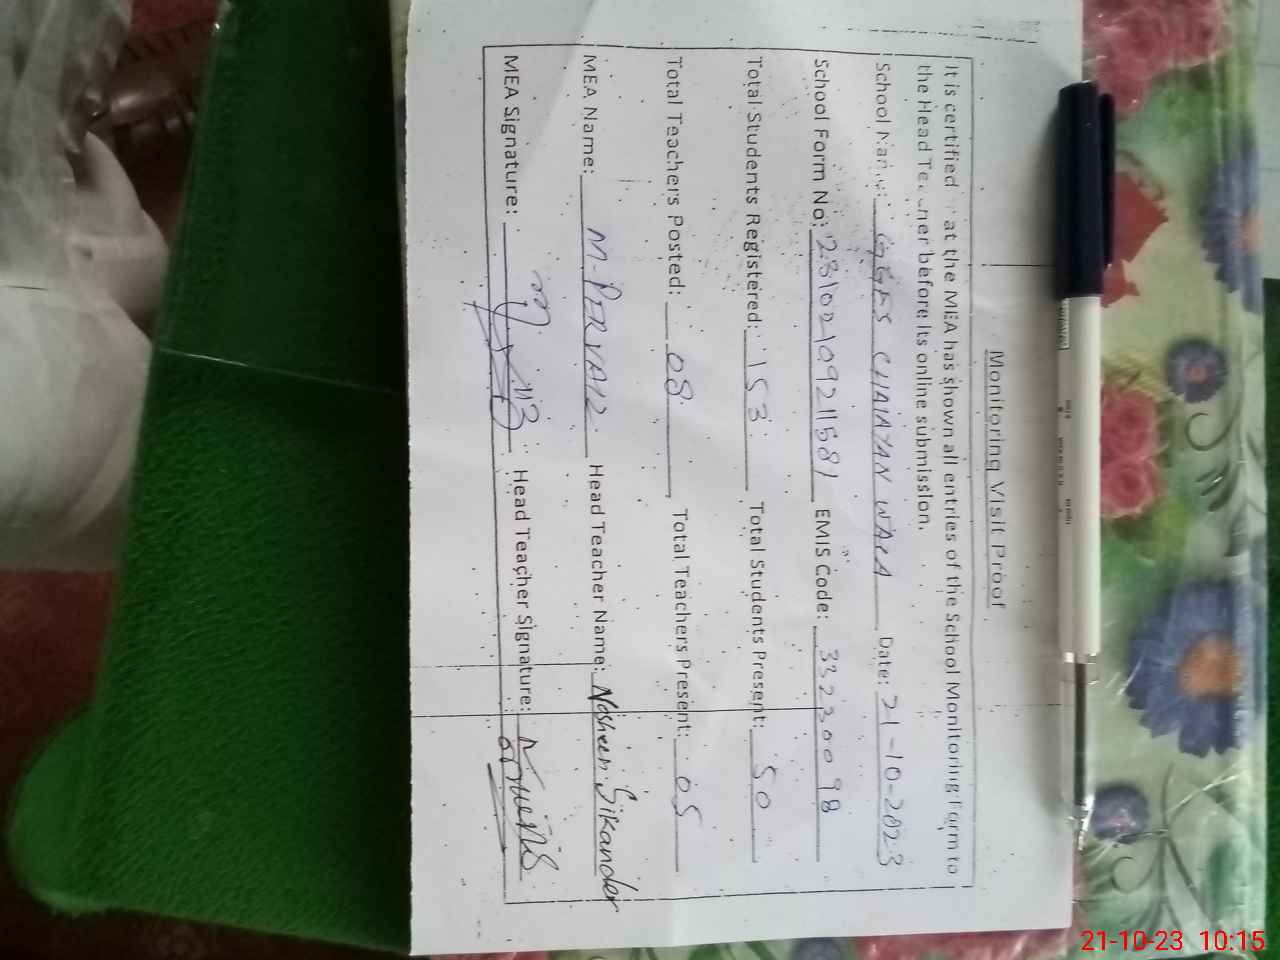 Monitoring Visit Proof
It is certified at the MEA has shown all entries of the School Monitoring Form to
the Head before its online submission.
School GGES WALA Date: 21-10-2023
School Form No: 28102109211581 EMIS Code: 33230098
Total Students Registered: 153 Total Students Present: 50
Total Teachers Posted: 08 Total Teachers Present: 05
MEA Name: M. PERVAIZ Head Teacher Name: Nosheen Sikander
MEA Signature: Head Teacher Signature:
21-10-23 10:15